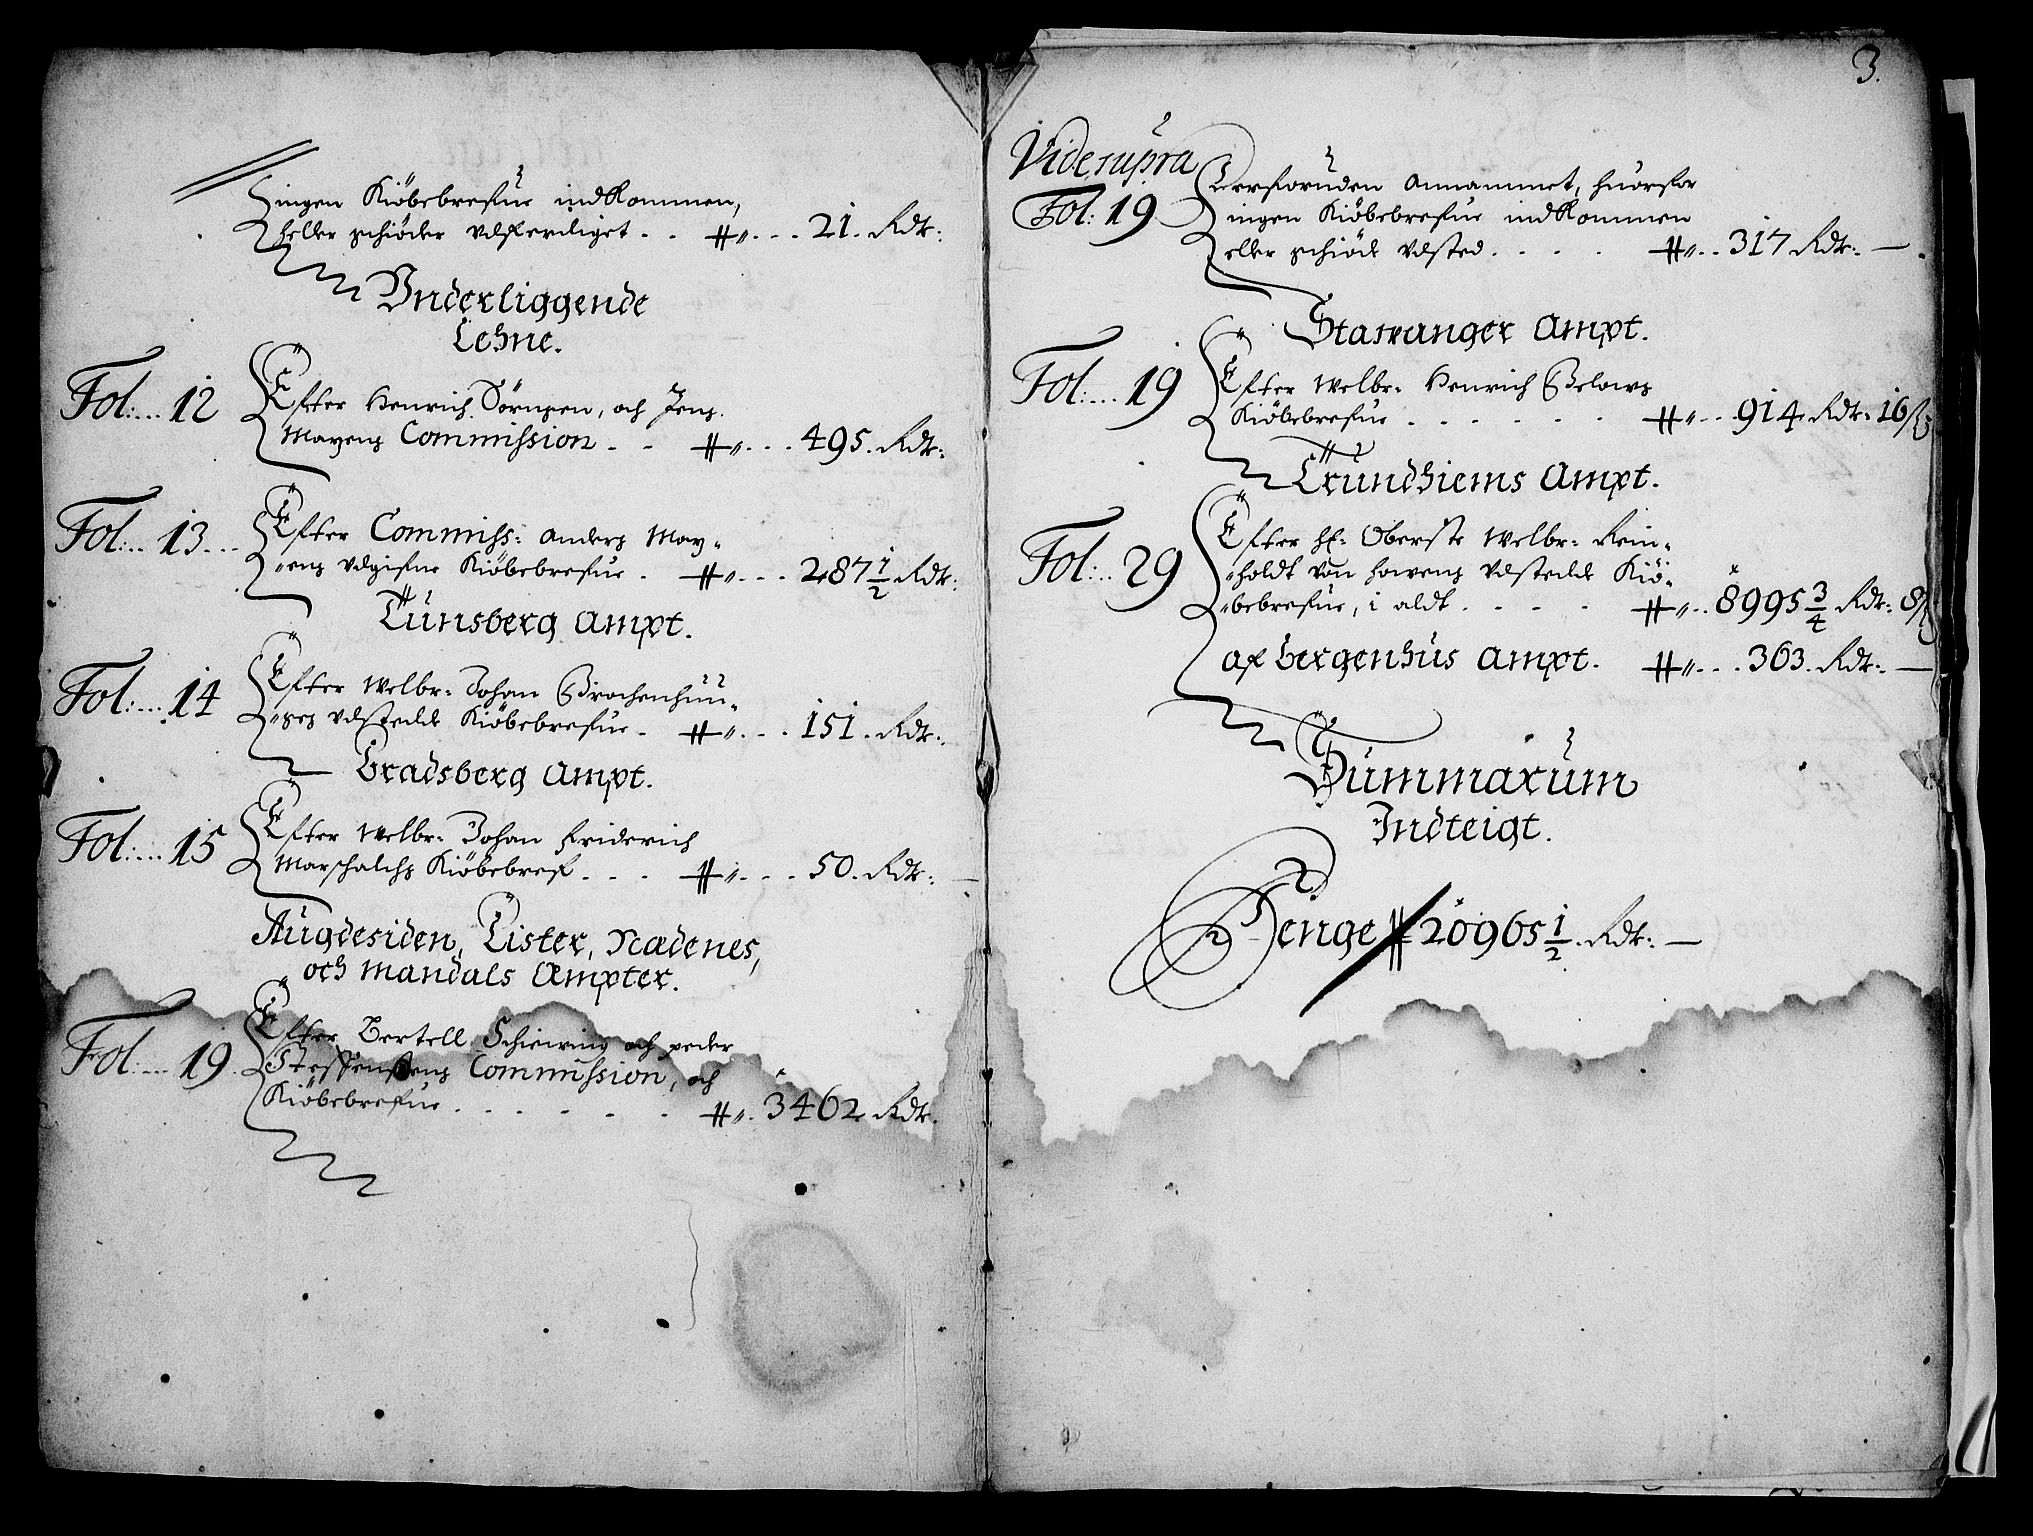 ingen Kiöbebrefue indkommen,
heller schiöder udferdiget . . # „ . . . 21. Rdr:
Vnderliggende
Lehne.
Fol: ... 12 Efter Henrich Sörnsen, och Jens
Mayens Commission . . # „ . . . 495. Rdr:
Fol: .. 13 ... Efter Commiss: Anders May-
ens udgifne Kiöbebrefue . # „ . . . 287 1/2 Rdr:
Tünsberg Ampt.
Fol: ... 14 Efter Welbr: Johan Brochenhuu-
ses udstedde Kiöbebrefue . # „ . . . 151. Rdr:
Bradsberg Ampt.
Fol: ... 15 Efter Welbr: Johan Friderich
Marschalchs Kiöbebref . . . # „ . . . 50. Rdr:
Augdesiden, Lister, Nædenes,
och Mandals Ampter.
Fol: ... 19. Efter Bertell Schieiving och peder
Steffensens Commission, och
Kiöbebrefue . . . . . . # „ . 3462 Rdr.
3.
Vide supra
Fol: 19 Derforuden Annammet, huorfor
ingen Kiöbebrefue indkommen
eller schiöde udsted . . . . # „ .. 317 Rdr: —
Stavanger Ampt.
Fol: ... 19 Efter Welbr: Henrich Belows
Kiöbebrefue . . . . . . # „ .. 914 Rdr: 16 ß
Trundhiems Ampt.
Fol: .. 29 Efter H: Oberste Welbr: Rein-
holdt von Howens udstedde Kiö-
bebrefue, i aldt . . . . # „ .. 8995 3/4 Rdr: 8 ß
Af Bergenhus Ampt. # „ . . . 363. Rdr: —
Summarum
Indteigt.
Penge # 20965 1/2. Rdr: —